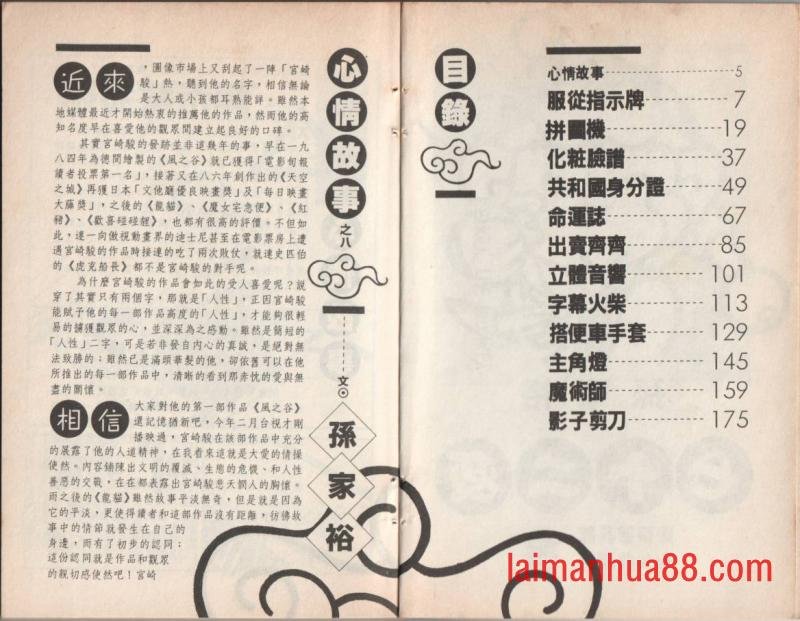 近來，圖像市場上又刮起了一陣「宮崎
駿」熱，聽到他的名字，相信無論
是大人或小孩都耳熟能詳。雖然本
地媒體最近才開始熱衷的推薦他的作品，然而他的高
知名度早在喜愛他的觀眾間建立起良好的口碑。
其實宮崎駿的發跡並非這幾年的事，早在一九
八四年為德間繪製的《風之谷》就已獲得「電影旬報
讀者投票第一名」，接著又在八六年創作出的《天空
之城》再獲日本「文化廳優良映畫獎」及「每日映畫
大藤獎」，之後的《龍貓》、《魔女宅急便》、《紅
豬》、《歡喜碰碰貍》，也都有很高的評價。不但如
此，連一向傲視動畫界的迪士尼甚至在電影票房上遭
遇宮崎駿的作品時接連的吃了兩次敗仗，就連史匹伯
的《虎克船長》都不是宮崎駿的對手呢。
為什麼宮崎駿的作品會如此的受人喜愛呢？說
穿了其實只有兩個字，那就是「人性」，正因宮崎駿
能賦予他的每一部作品高度的「人性」，才能夠很輕
易的擄獲觀眾的心，並深深為之感動。雖然是簡短的
「人性」二字，可是若非發自內心的真誠，是絕對無
法致勝的；雖然已是滿頭華髮的他，卻依舊可以在他
所推出的每一部作品中，清晰的看到那赤忱的愛與無
盡的關懷。
相信大家對他的第一部作品《風之谷》
還記憶猶新吧，今年二月台視才剛
播映過，宮崎駿在該部作品中充分
的展露了他的人道精神，在我看來這就是大愛的情操
使然。內容鋪陳出文明的覆滅、生態的危機、和人性
善惡的交戰，在在都表露出宮崎駿悲天憫人的胸懷。
而之後的《龍貓》雖然故事平淡無奇，但是就是因為
它的平淡，更使得讀者和這部作品沒有距離，彷彿故
事中的情節就發生在自己的
身邊，而有了初步的認同；
這份認同就是作品和觀眾
的親切感使然吧！宮崎
心情故事之八
文⊙孫家裕
目錄
心情故事 5
服從指示牌 7
拼圖機 19
化粧臉譜 37
共和國身分證 49
命運誌 67
出賣齊齊 85
立體音響 101
字幕火柴 113
搭便車手套 129
主角燈 145
魔術師 159
影子剪刀 175
laimanhua88.com